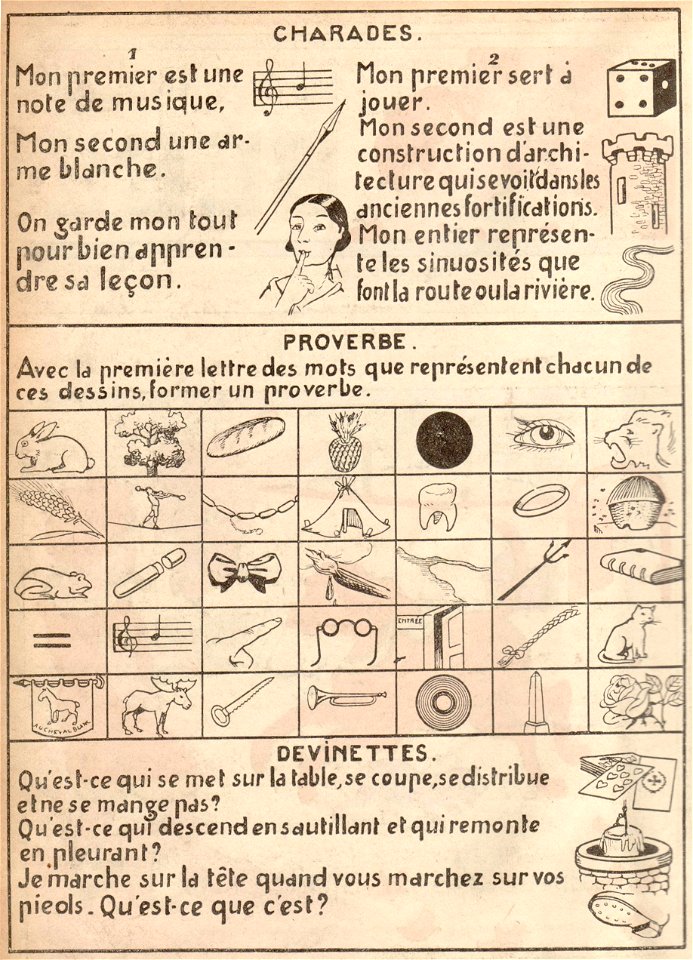 CHARADES.
1
Mon premier est une
note de musique,
Mon second une ar-
me blanche.
On garde mon tout
pour bien appren-
dre sa leçon.
2
Mon premier sert à
jouer.
Mon second est une
construction d'archi-
tecture qui se voit dans les
anciennes fortifications.
Mon entier représen-
te les sinuosités que
font la route ou la rivière.
PROVERBE.
Avec la première lettre des mots que représentent chacun de
ces dessins, former un proverbe.
ENTRÉE
AU CHEVAL BLANC
DEVINETTES.
Qu'est-ce qui se met sur la table, se coupe, se distribue
et ne se mange pas?
Qu'est-ce qui descend en sautillant et qui remonte
en pleurant?
Je marche sur la tête quand vous marchez sur vos
pieds. Qu'est-ce que c'est?